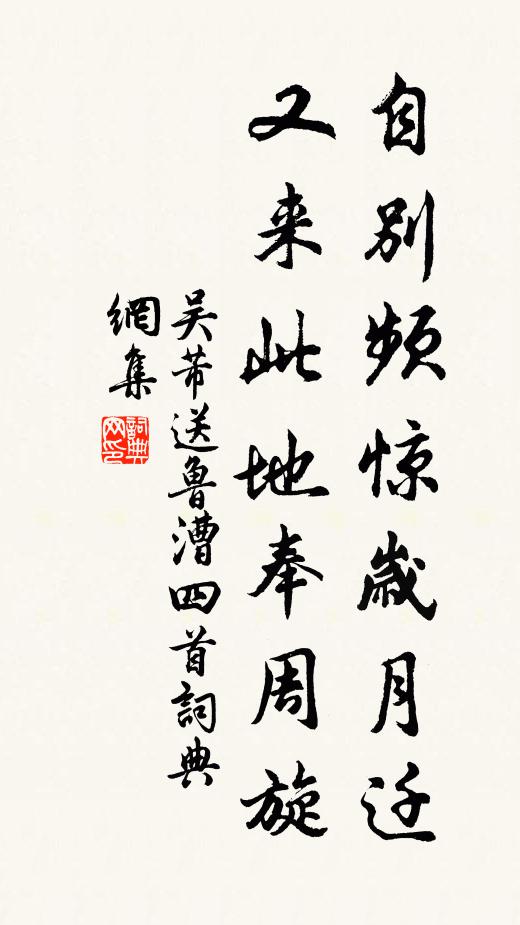 自别频惊歲月迁
又来此地奉周旋
吴芾送魯漕四首詞典
網集
詞典
网印